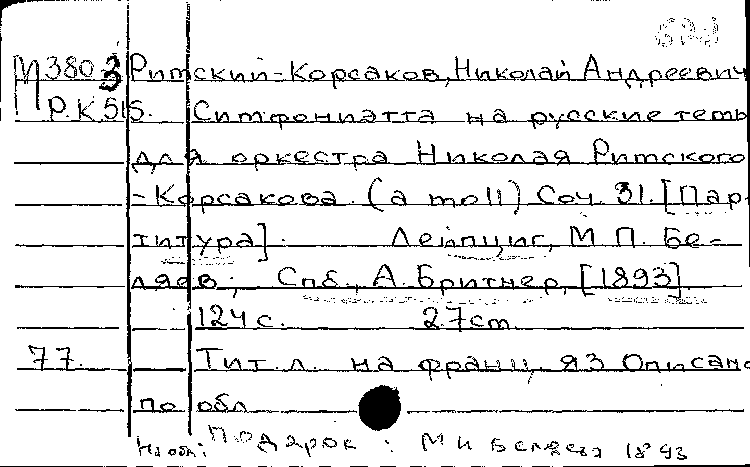 М3803 Римский-Корсаков, Николай Андреевич
Р.К.515. Симфониэтта на русские темы
для оркестра Николая Римского
-Корсакова. (a moll) Соч. 31. [Пар-
титура].    Лейпциг, М. П. Бе-
ляев; Спб., А. Битнер, [1893].
124 с.    27 cm.
77.    Тит. л. на франц. яз Описано
по обл
На обл: Подарок: М И Беляева 1893